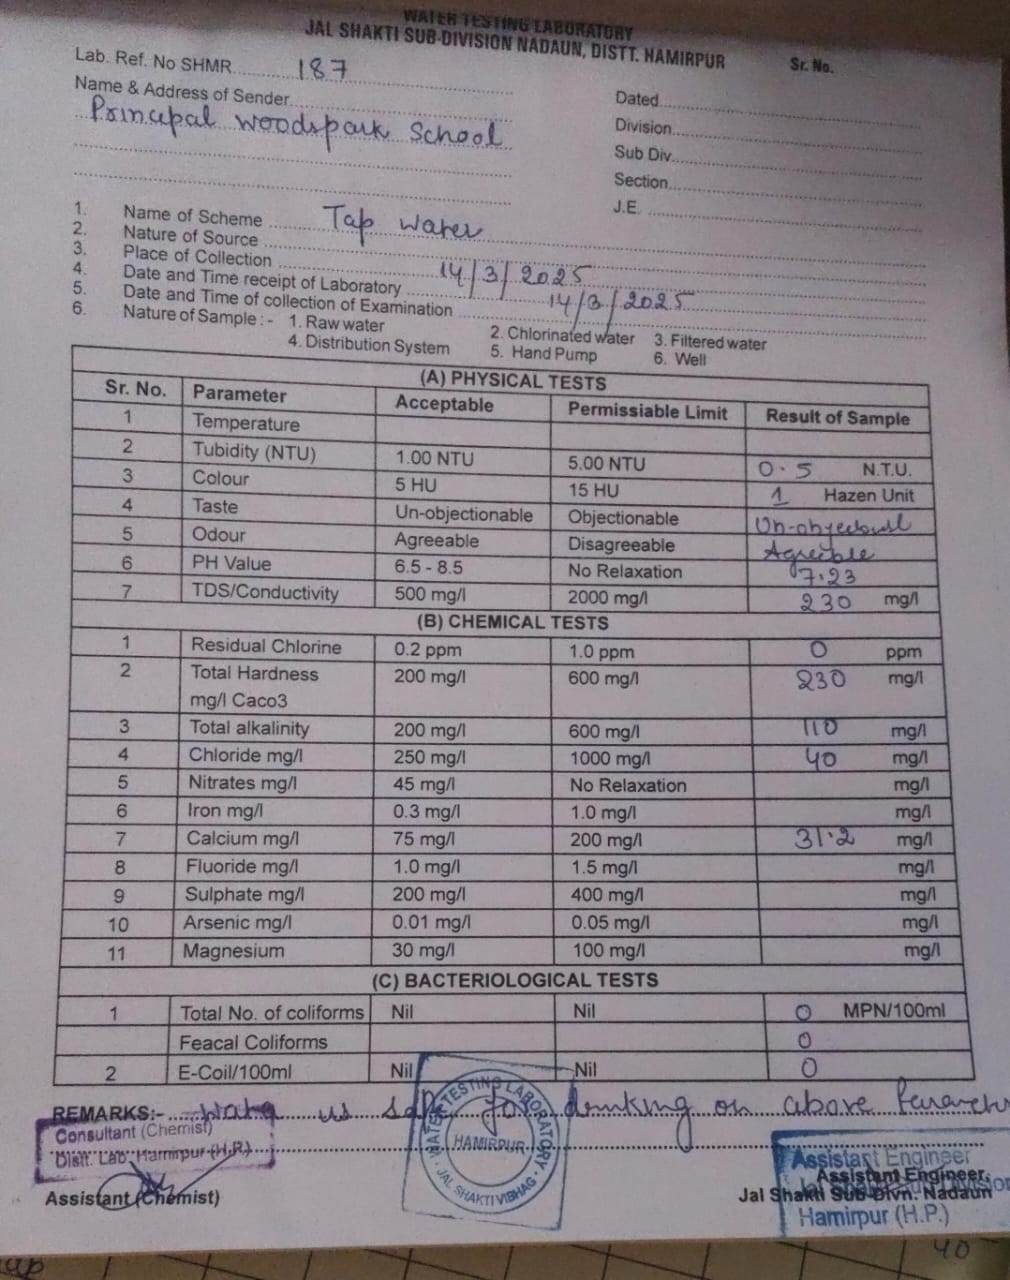 WATER TESTING LABORATORY
JAL SHAKTI SUB-DIVISION NADAUN, DISTT. HAMIRPUR
Sr. No.
Lab. Ref. No SHMR 187
Name & Address of Sender
Principal Woodspark School
Dated
Division
Sub Div.
Section
J.E.
1. Name of Scheme Tap water
2. Nature of Source
3. Place of Collection
4. Date and Time receipt of Laboratory 14/3/2025
5. Date and Time of collection of Examination 14/3/2025
6. Nature of Sample :- 1. Raw water 2. Chlorinated water 3. Filtered water
4. Distribution System 5. Hand Pump 6. Well
(A) PHYSICAL TESTS
Sr. No. Parameter Acceptable Permissiable Limit Result of Sample
1 Temperature
2 Tubidity (NTU) 1.00 NTU 5.00 NTU 0.5 N.T.U.
3 Colour 5 HU 15 HU 1 Hazen Unit
4 Taste Un-objectionable Objectionable
5 Odour Agreeable Disagreeable Agreeble
6 PH Value 6.5 - 8.5 No Relaxation 7.23
7 TDS/Conductivity 500 mg/l 2000 mg/l 230 mg/l
(B) CHEMICAL TESTS
1 Residual Chlorine 0.2 ppm 1.0 ppm 0 ppm
2 Total Hardness 200 mg/l 600 mg/l 230 mg/l
mg/l Caco3
3 Total alkalinity 200 mg/l 600 mg/l 110 mg/l
4 Chloride mg/l 250 mg/l 1000 mg/l 40 mg/l
5 Nitrates mg/l 45 mg/l No Relaxation mg/l
6 Iron mg/l 0.3 mg/l 1.0 mg/l mg/l
7 Calcium mg/l 75 mg/l 200 mg/l 31.2 mg/l
8 Fluoride mg/l 1.0 mg/l 1.5 mg/l mg/l
9 Sulphate mg/l 200 mg/l 400 mg/l mg/l
10 Arsenic mg/l 0.01 mg/l 0.05 mg/l mg/l
11 Magnesium 30 mg/l 100 mg/l mg/l
(C) BACTERIOLOGICAL TESTS
1 Total No. of coliforms Nil Nil 0 MPN/100ml
Feacal Coliforms 0
2 E-Coil/100ml Nil Nil 0
REMARKS:- water is safe for drinking on above
Consultant (Chemist)
Distt. Lab. Hamirpur (H.P.)
Assistant (Chemist)
WATER TESTING LABORATORY
HAMIRPUR
JAL SHAKTI VIBHAG
Assistant Engineer
Assistant Engineer,
Jal Shakti Sub Division
Jal Shakti Sub-Divn. Nadaun
Hamirpur (H.P.)
40